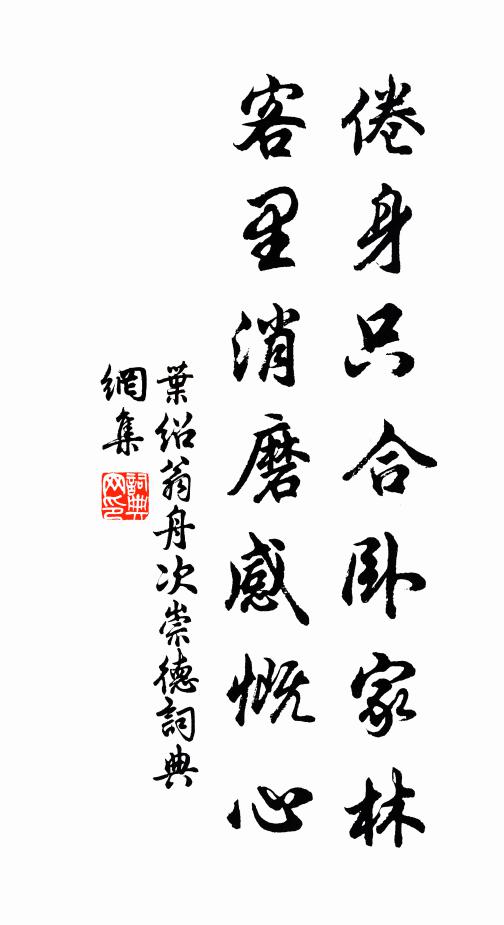 倦身只合卧家林
客里消磨感慨心
葉绍翁舟次崇德詞典
網集
詞典
网印